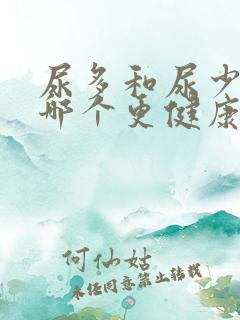 尿多和尿少
哪个更健康
何仙姑
未经同意禁止转载